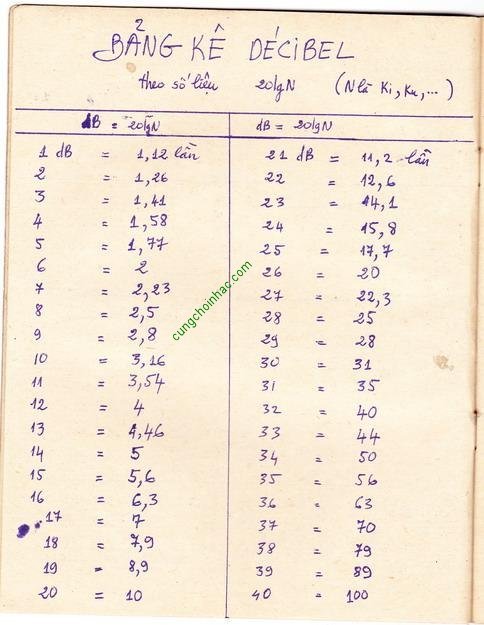 BẢNG KÊ DÉCIBEL
theo số liệu 20lgN (N là Ki, Ku,...)
dB = 20lgN
1 dB = 1,12 lần
2 = 1,26
3 = 1,41
4 = 1,58
5 = 1,77
6 = 2
7 = 2,23
8 = 2,5
9 = 2,8
10 = 3,16
11 = 3,54
12 = 4
13 = 4,46
14 = 5
15 = 5,6
16 = 6,3
17 = 7
18 = 7,9
19 = 8,9
20 = 10
dB = 20lgN
21 dB = 11,2 lần
22 = 12,6
23 = 14,1
24 = 15,8
25 = 17,7
26 = 20
27 = 22,3
28 = 25
29 = 28
30 = 31
31 = 35
32 = 40
33 = 44
34 = 50
35 = 56
36 = 63
37 = 70
38 = 79
39 = 89
40 = 100
cungchoinhac.com